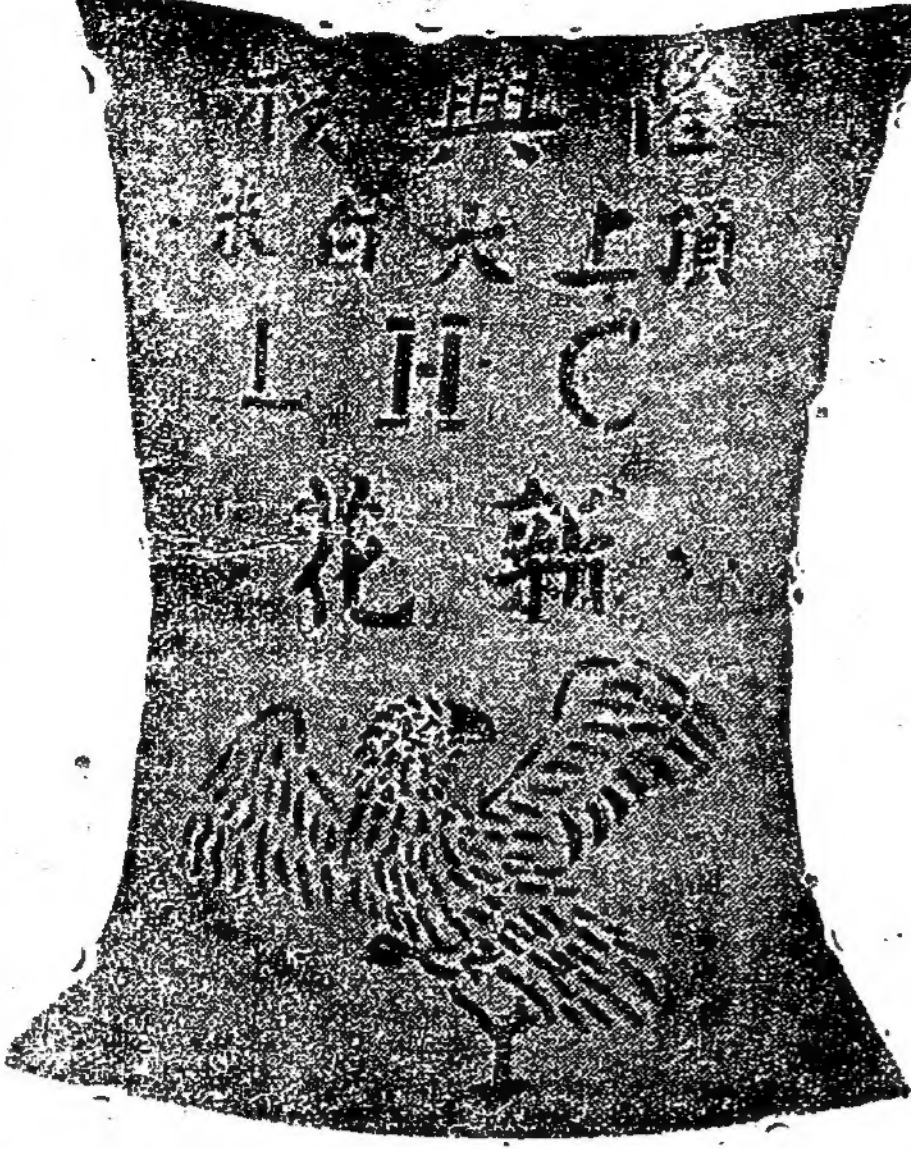 隆興
頂上大米
L H C
新花